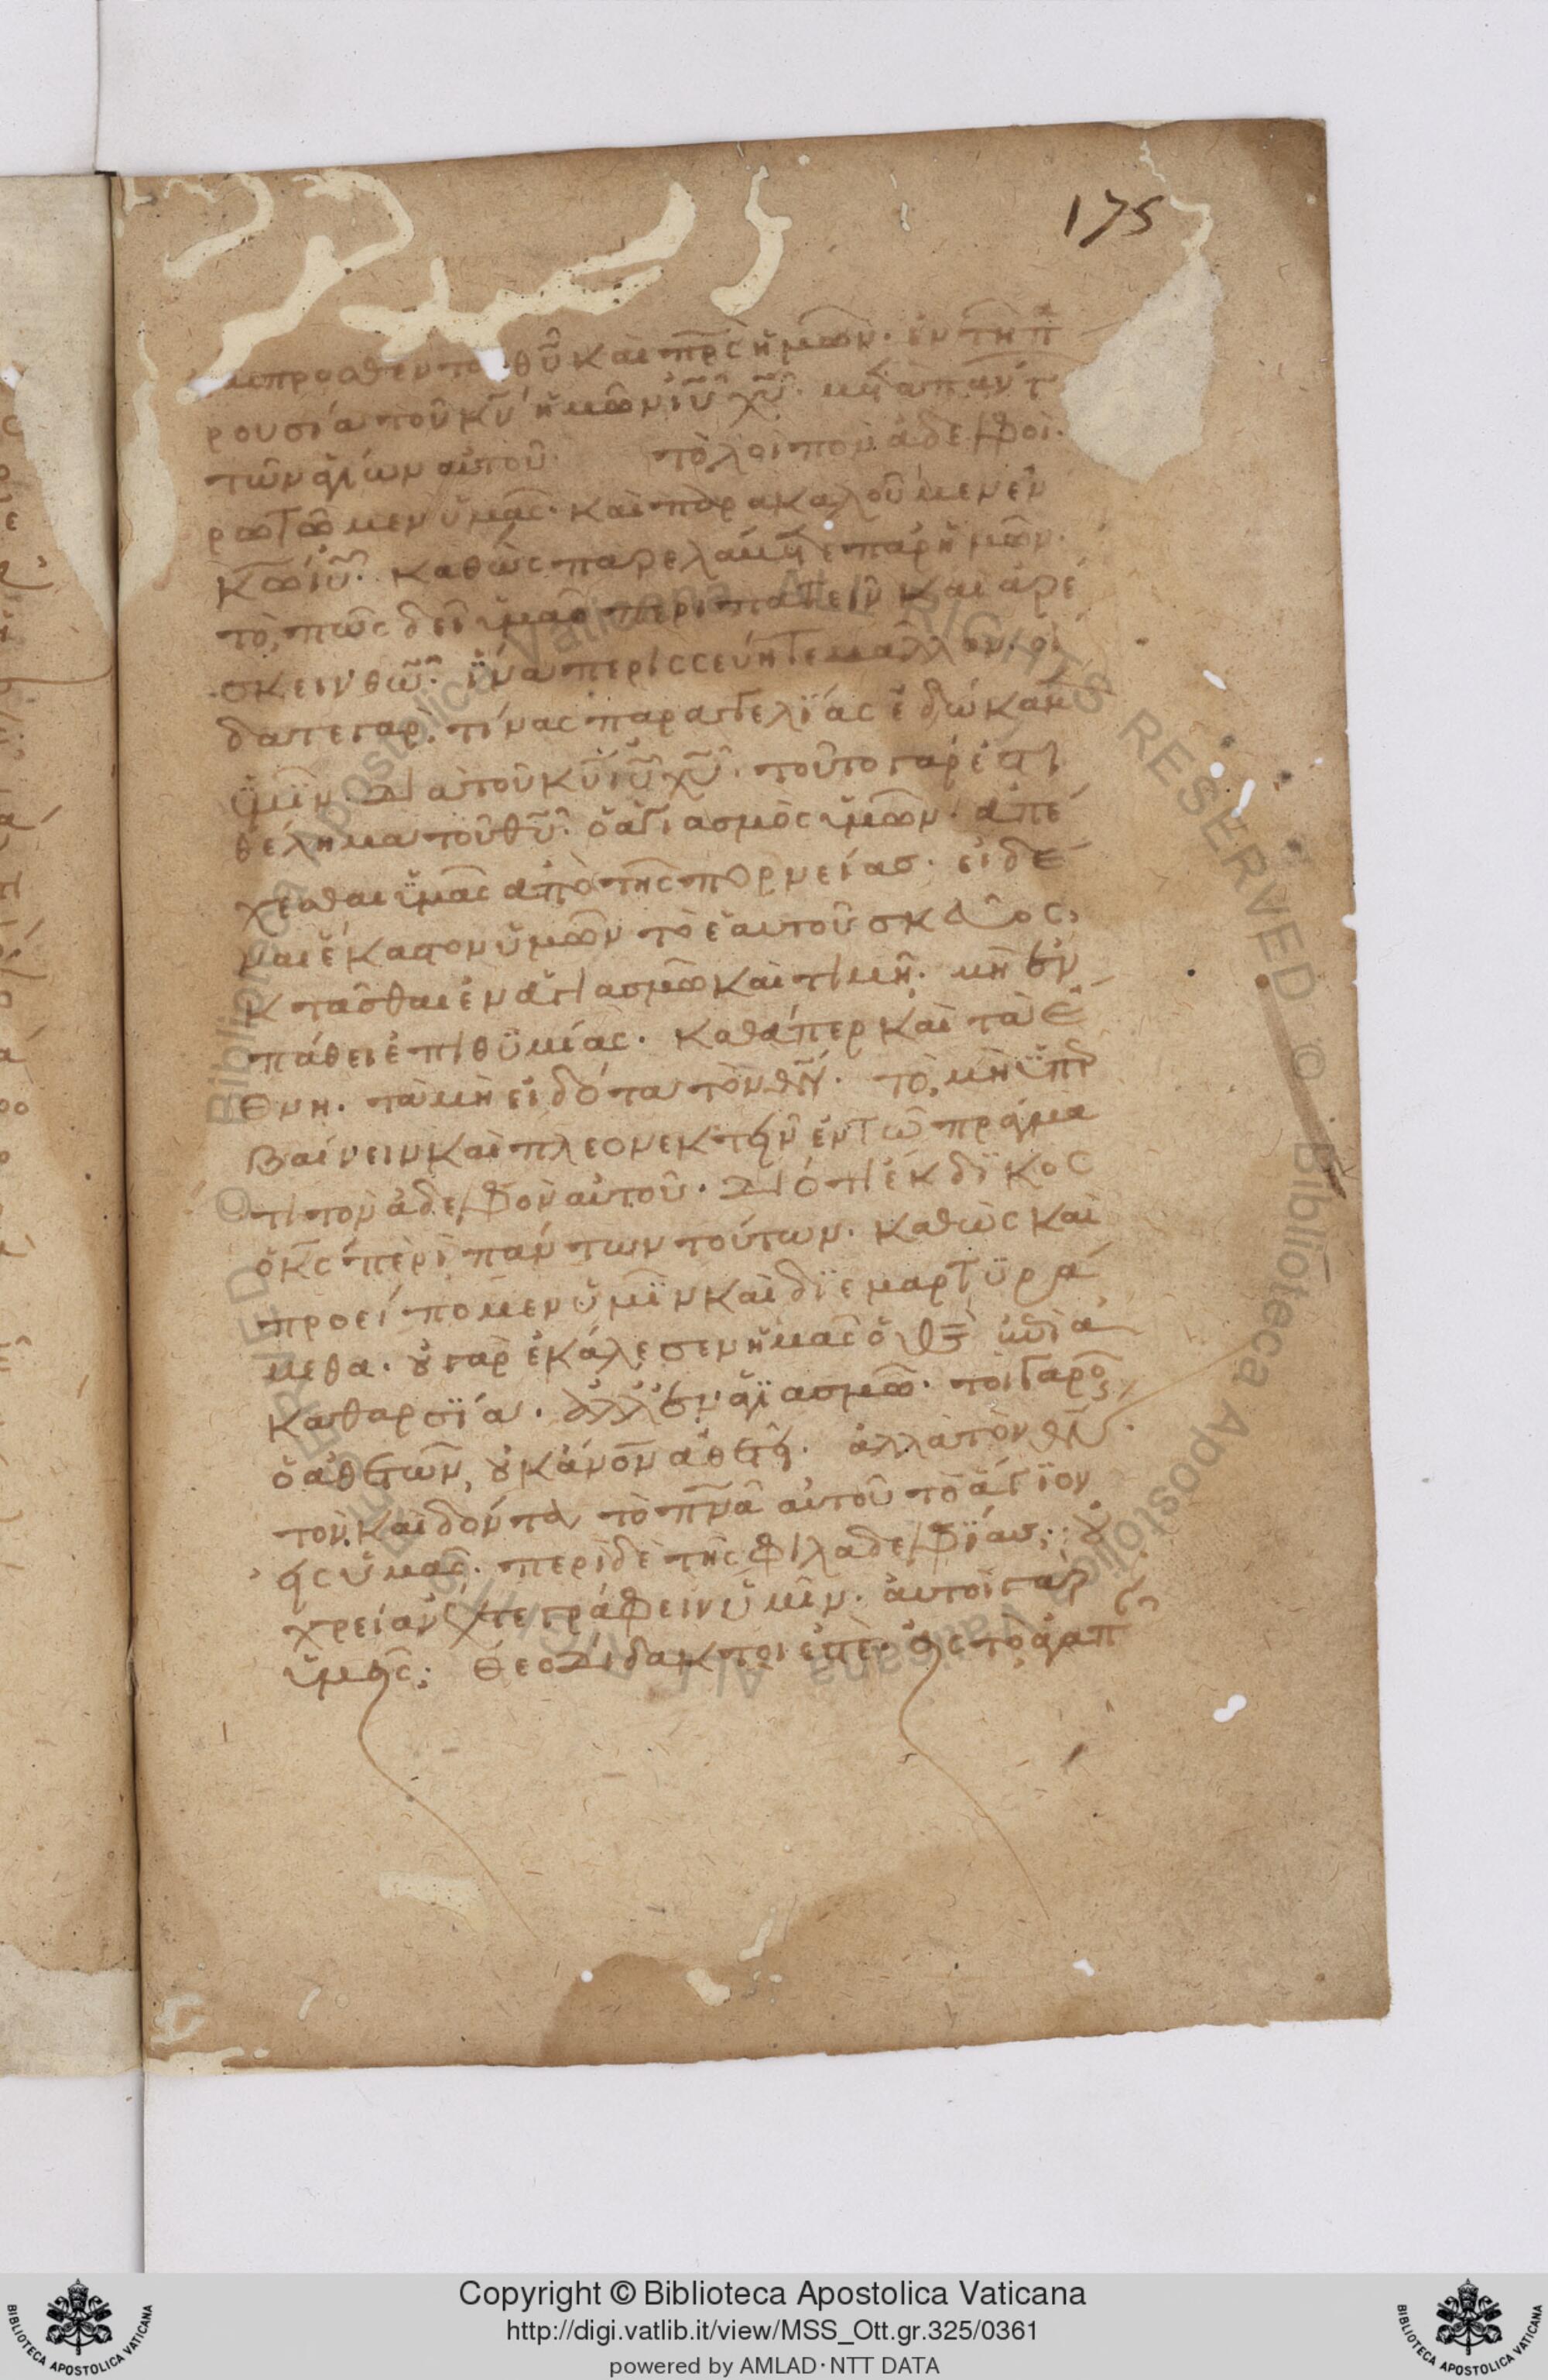 175
ἔμπροσθεν το θυ καὶ πρς ἡμῶν· ἐν τῆ π
ρουσία τοῦ κυ ἡμῶν ιυ χυ· μετὰ πάντ
τῶν ἁγίων αὐτοῦ· τὸ λοιπὸν ἀδελφοί·
ρωτῶμεν ὑμᾶς· καὶ παρακαλοῦμεν ἐν
κω ιυ· καθὼς παρελάβετε παρ' ἡμῶν·
τὸ, πῶς δεῖ ὑμᾶσ περιπατεῖν καὶ ἀρέ
σκειν θω· ἵνα περισσεύητε μᾶλλον· οἴ
δατε γαρ· τίνας παραγγελΐας ἐδώκαμ
ὑμῖν· διὰ τοῦ κυ ιυ χυ· τοῦτο γάρ ἐστι
θέλημα τοῦ θυ· ὁ ἁγιασμὸς ὑμῶν· ἀπέ
χεσθαι ὑμᾶς ἀπὸ τῆς πορνείασ· εἰδέ
ναι ἕκαστον ὑμῶν τὸ ἑαυτοῦ σκεῦος,
κτᾶσθαι ἐν ἁγιασμῶ καὶ τιμῆ· μὴ ἐν
πάθει ἐπιθϋμίας· καθάπερ καὶ τὰ ἔ
θνη· τὰ μὴ εἰδότα τὸν θν· τὸ, μὴ ὑπερ
βαίνειν καὶ πλεονεκτεῖν ἐν τῶ πράγμα
τι τὸν ἀδελφὸν αὐτοῦ· διότι ἔκδϊκος
ὁ κς περὶ πάντων τούτων· καθὼς καὶ
προείπομεν ὑμῖν καὶ δϊεμαρτϋρά
μεθα· οὐ γαρ ἐκάλεσεν ἡμᾶς ὁ θς ἐπὶ ἀ
καθαρσΐα· ἀλλ' ἐν ἁγϊασμῶ· τοιγαροῦν
ὁ ἀθετῶν, οὐκ ἄνον ἀθετεῖ· ἀλλὰ τὸν θν·
τὸν καὶ δόντα τὸ πνα αὐτοῦ τὸ ἅγϊον
εἰς ὑμᾶς· περὶ δὲ τῆς φιλαδελφΐας· οὐ
χρείαν ἔχετε γράφειν ὑμῖν· αὐτοὶ γαρ
ὑμεῖς· θεοδίδακτοι ἐστὲ· εἰς τὸ ἀγαπ
Copyright © Biblioteca Apostolica Vaticana
http://digi.vatlib.it/view/MSS_Ott.gr.325/0361
powered by AMLAD·NTT DATA